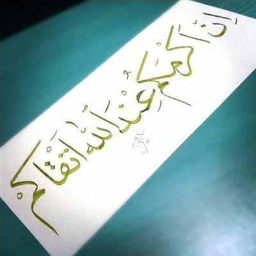 إن أكرمكم عند الله اتقاكم